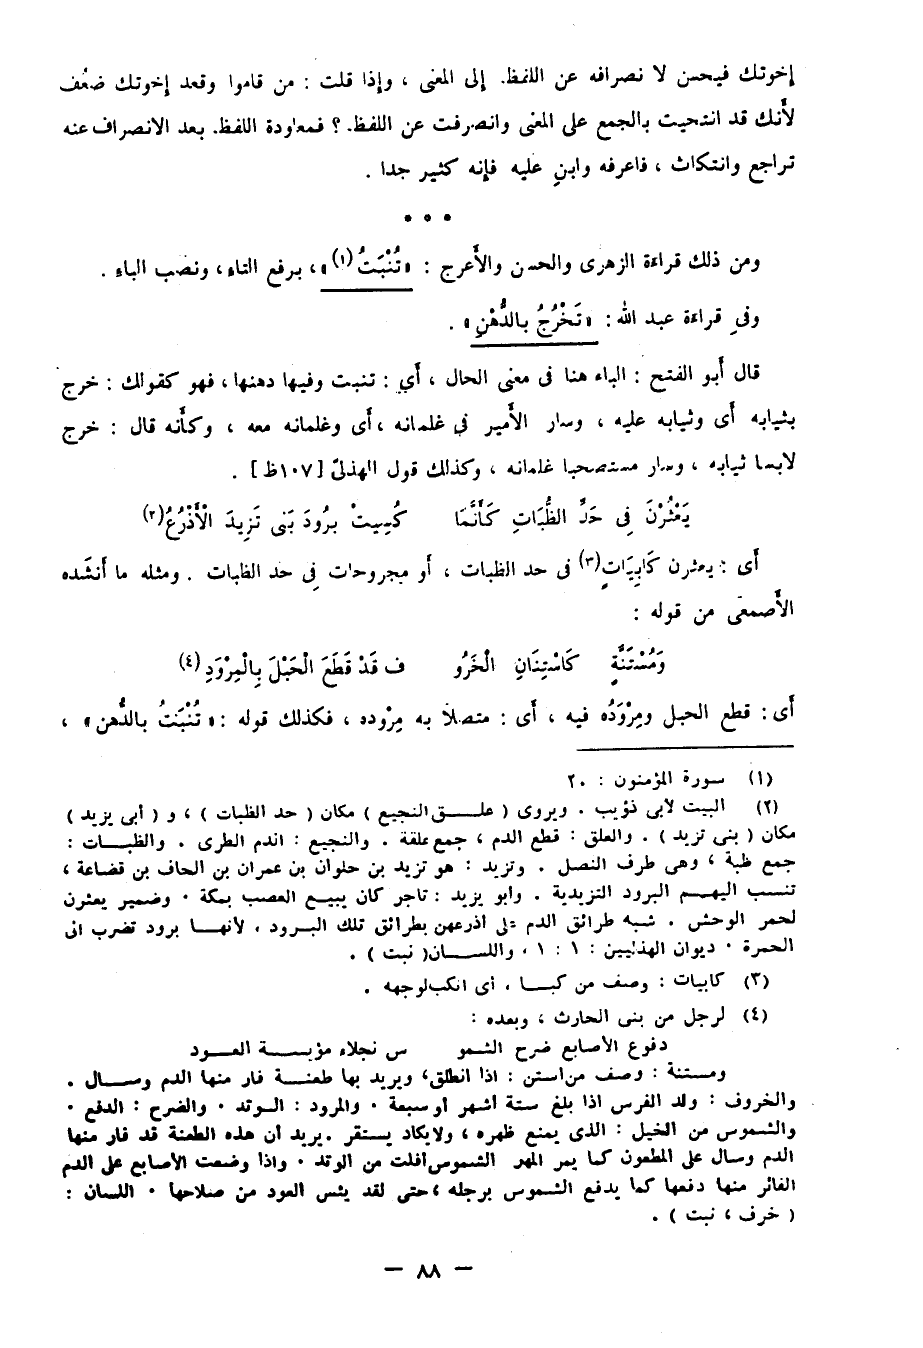 إخوتك فيحسن لا نصرافه عن اللفظ. إلى المعنى ، وإذا قلت : من قاموا وقعد إخوتك ضعُف
لأَنك قد انتحيت بالجمع على المعنى وانصرفت عن اللفظ. ؟ فمعاودة اللفظ. بعد الانصراف عنه
تراجع وانتكاث ، فاعرفه وابنِ عليه فإنه كثير جدا .
• • •
ومن ذلك قراءة الزهرى والحسن والأَعرج : «تُنْبَتُ(١)»، برفع التاء، ونصب الباء .
وفى قراءة عبد الله: «تَخْرُجُ بالدُّهْنِ» .
قال أَبو الفتح : الباء هنا فى معنى الحال ، أَي : تنبت وفيها دهنها، فهو كقولك : خرج
بثيابه أَى وثيابه عليه ، وسار الأَمير فى غلمانه ،أَى وغلمانه معه ، وكأَنه قال : خرج
لابسا ثيابه ، وسار مستصحبا غلمانه ، وكذلك قول الهذلىّ [١٠٧ظ] .
يَعْثُرْنَ فِى حَدِّ الظُّبَاتِ كَأَنَّمَا كُسِيتْ برُودَ بَنى تَزِيدَ الْأَذْرُعُ(٢)
أَى : يعثرن كَابِيَاتٍ(٣) فى حد الظبات ، أَو مجروحات فِى حد الظبات . ومثله ما أَنشده
الأَصمعى من قوله :
وَمُسْتَنَّةٍ كَاسْتِنَانِ الْخَرُو فِ قَدْ قَطَعَ الْحَبْلَ بِالْمِرْوَدِ (٤)
أَى : قطع الحبل ومِرْوَدُه فيه ، أَى : متصلا به مِرْوده ، فكذلك قوله :« تُنْبَتُ بالدُّهن» ،
(١) سورة المؤمنون : ٢٠
(٢) البيت لأبى ذؤيب . ويروى ( علـق النجيع ) مكان ( حد الظبات ) ، و ( أبى يزيد )
مكان ( بنى تزيد ) . والعلق : قطع الدم ، جمع علقة . والنجيع : الدم الطرى . والظبـات :
جمع ظبة ، وهى طرف النصل . وتزيد : هو تزيد بن حلوان بن عمران بن الحاف بن قضاعة ،
تنسب اليهـم البرود التزيدية . وأبو يزيد : تاجر كان يبيـع العصب بمكة . وضمير يعثرن
لحمر الوحش . شبه طرائق الدم على أذرعهن بطرائق تلك البـرود ، لأنهـا برود تضرب الى
الحمرة . ديوان الهذليين : ١ : ١ ، واللسـان( نبت ) .
(٣) كابيات : وصف من كبـا ، أى انكب لوجهه .
(٤) لرجل من بنى الحارث ، وبعده :
دفوع الأصابع ضرح الشمو س نجلاء مؤيسـة العـود
ومستنة : وصف من استن : اذا انطلق، ويريد بها طعنـة فار منها الدم وسـال .
والخروف : ولد الفرس اذا بلغ ستة أشهر أو سبعة . والمرود : الـوتد . والضرح : الدفع .
والشموس من الخيل : الذى يمنع ظهره ، ولا يكاد يستقر .يريد أن هذه الطعنة قد فار منها
الدم وسال على المطعون كما يمر المهر الشموس أفلت من الوتد . واذا وضعت الأصابع على الدم
الفائر منها دفعها كما يدفع الشموس برجله ،حتى لقد يئس العود من صلاحها . اللسان :
( خرف ، نبت ) .
— ٨٨ —